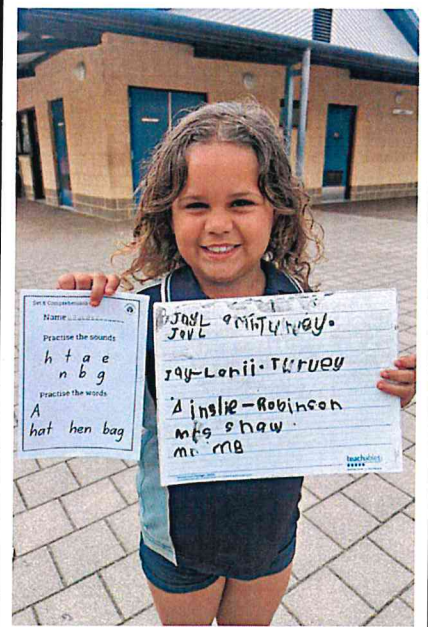 Set 6 Comprehension
Name
Practise the sounds
h t a e
n b g
Practise the words
A
hat hen bag
JayL
JayL Turvey.
Jay-Lanii-Turvey
Ainslie-Robinson
mrs shaw.
mr MB
teachables